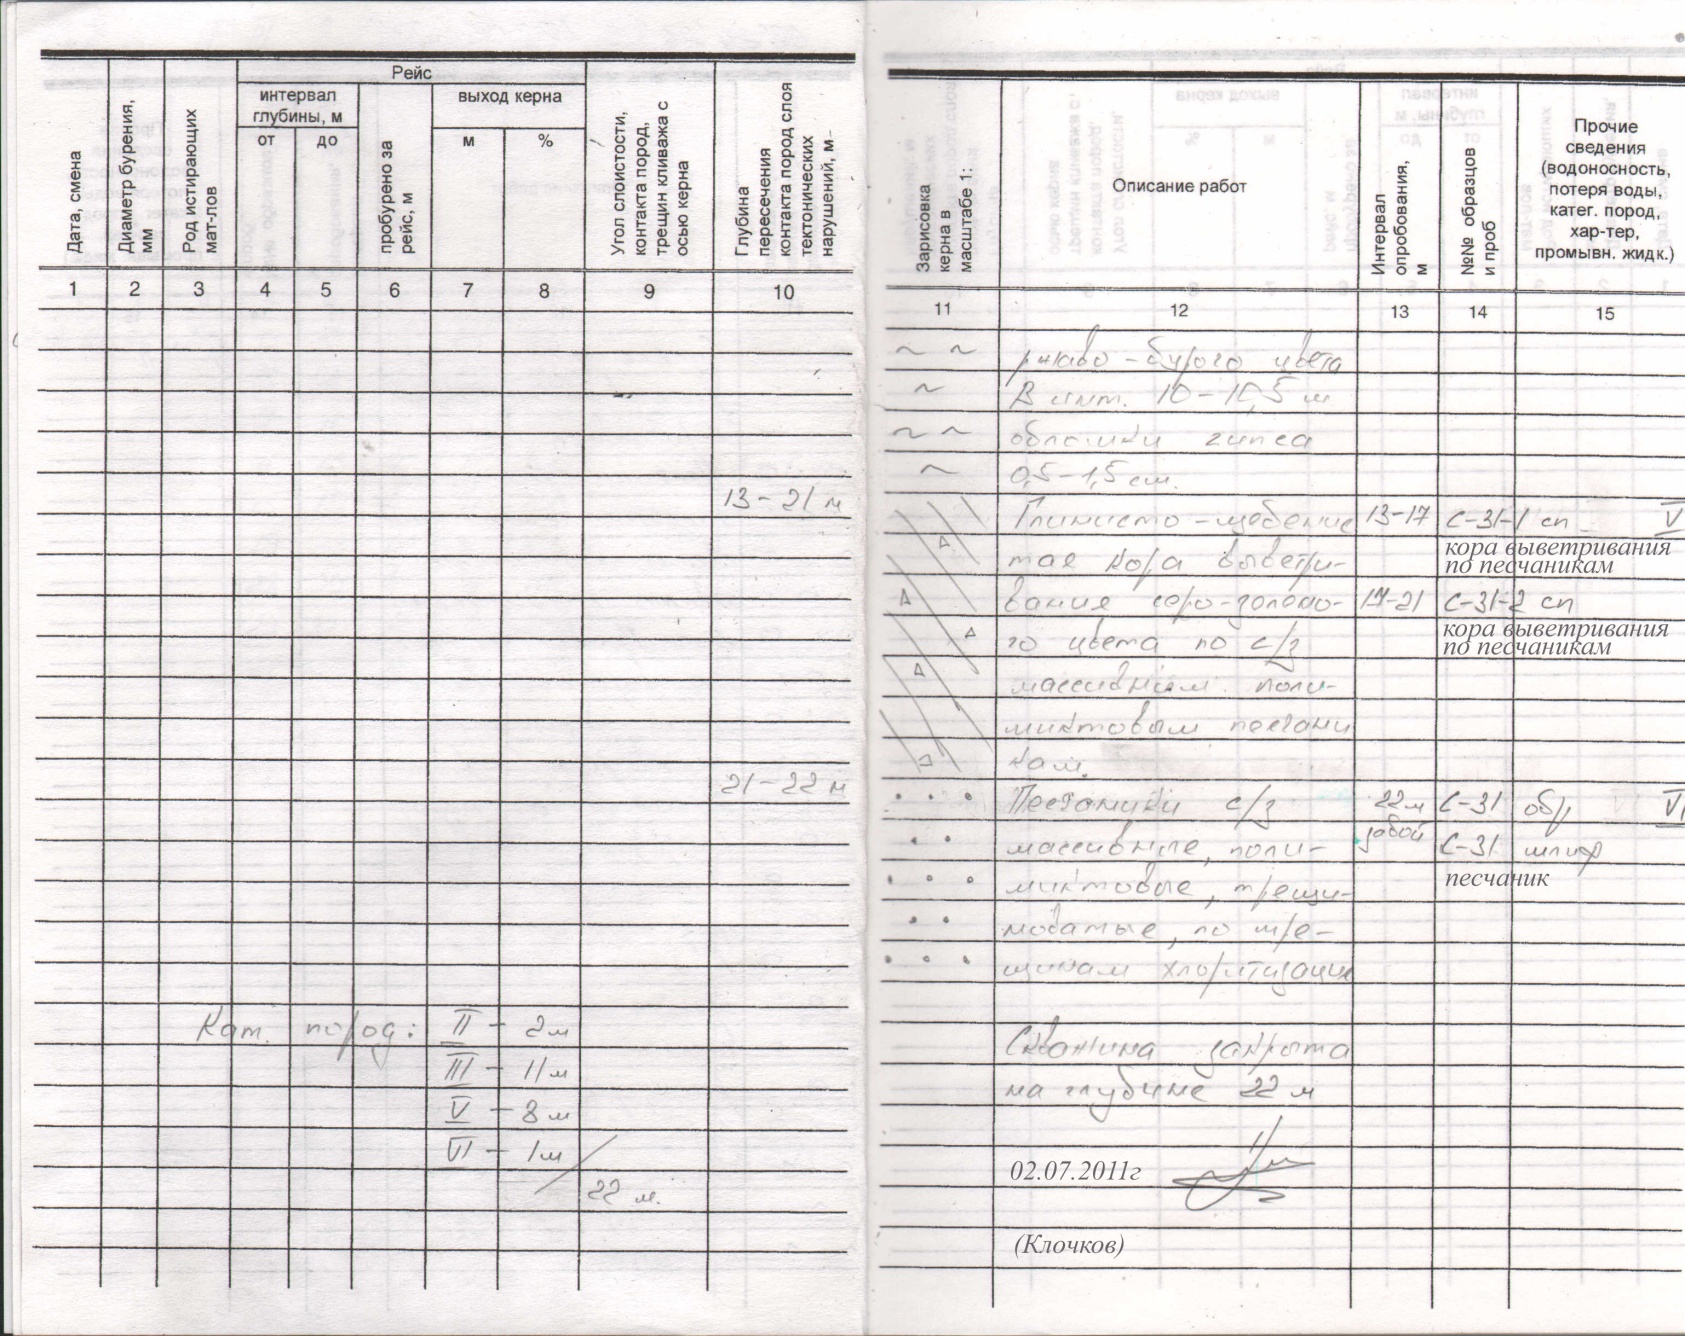 Дата, смена
Диаметр бурения, мм
Род истирающих мат-лов
Рейс
интервал глубины, м
от
до
пробурено за рейс, м
выход керна
м
%
Угол слоистости, контакта пород, трещин кливажа с осью керна
Глубина пересечения контакта пород слоя тектонических нарушений, м
1 2 3 4 5 6 7 8 9 10
13 - 21 м
21 - 22 м
Кат. пород: II - 2 м
III - 11 м
V - 8 м
VI - 1 м
22 м.
Зарисовка керна в масштабе 1:
Описание работ
Интервал опробования, м
№№ образцов и проб
Прочие
сведения
(водоносность,
потеря воды,
катег. пород,
хар-тер,
промывн. жидк.)
11 12 13 14 15
ржаво - бурого цвета
В инт. 10 - 10,5 м
обломки гипса
0,5 - 1,5 см.
Глинисто - щебенис 13-17 С-31-1 сп V
кора выветривания
по песчаникам
тая кора выветри-
вания серо-зелено- 17-21 С-31-2 сп
кора выветривания
по песчаникам
го цвета по с/з
массивным поли-
миктовым песчани
кам.
Песчаники с/з 22 м С-31 обр VI
забой
массивные, поли- С-31 шлиф
песчаник
миктовые, трещи-
новатые, по тре-
щинам хлоритизация
Скважина закрыта
на глубине 22 м
02.07.2011г
(Клочков)